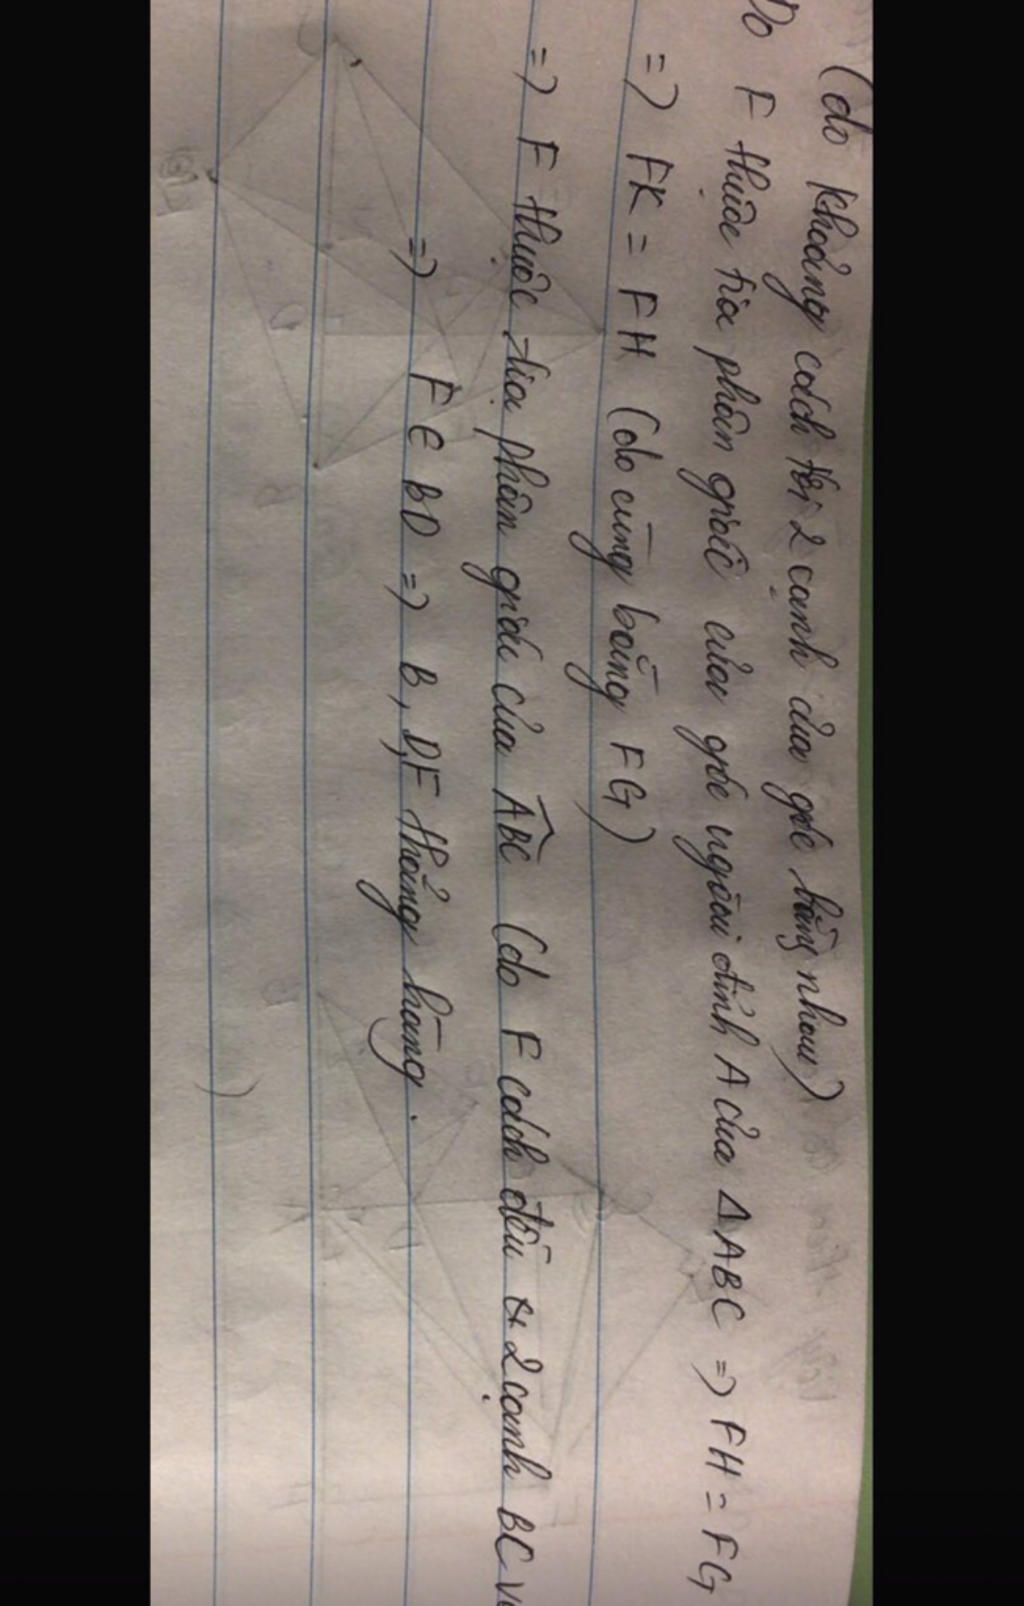 (do khoảng cách tới 2 cạnh của góc bằng nhau)
Do F thuộc tia phân giác của góc ngoài đỉnh A của ΔABC => FH = FG
=> FK = FH (do cùng bằng FG)
=> F thuộc tia phân giác của ABC (do F cách đều 2 cạnh BC
=> F ∈ BD => B, D, F thẳng hàng.